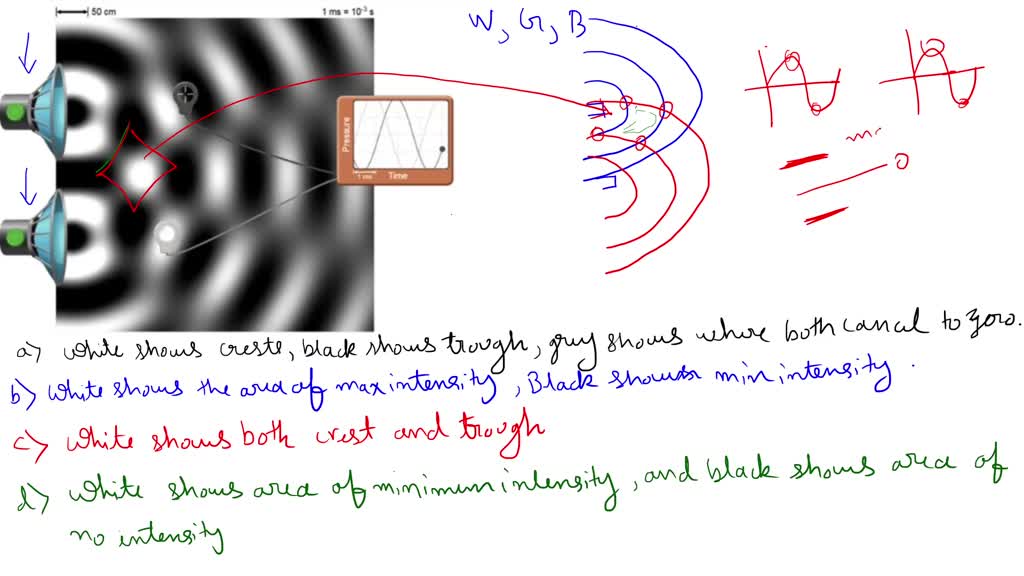 50 cm
1 ms = 10⁻³ s
W, G, B
Pressure
1 ms
Time
a) White shows crests, black shows trough, grey shows where both cancal to zero.
b) White shows the area of max intensity, Black shows min intensity.
c) White shows both crest and trough
d) White shows area of minimum intensity, and black shows area of
no intensity